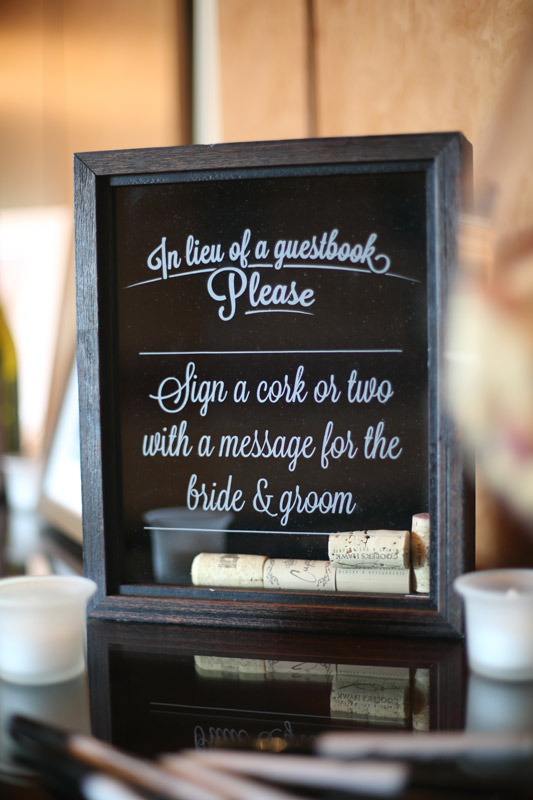 In lieu of a guestbook
Please
Sign a cork or two
with a message for the
bride & groom
COOPER'S HAWK